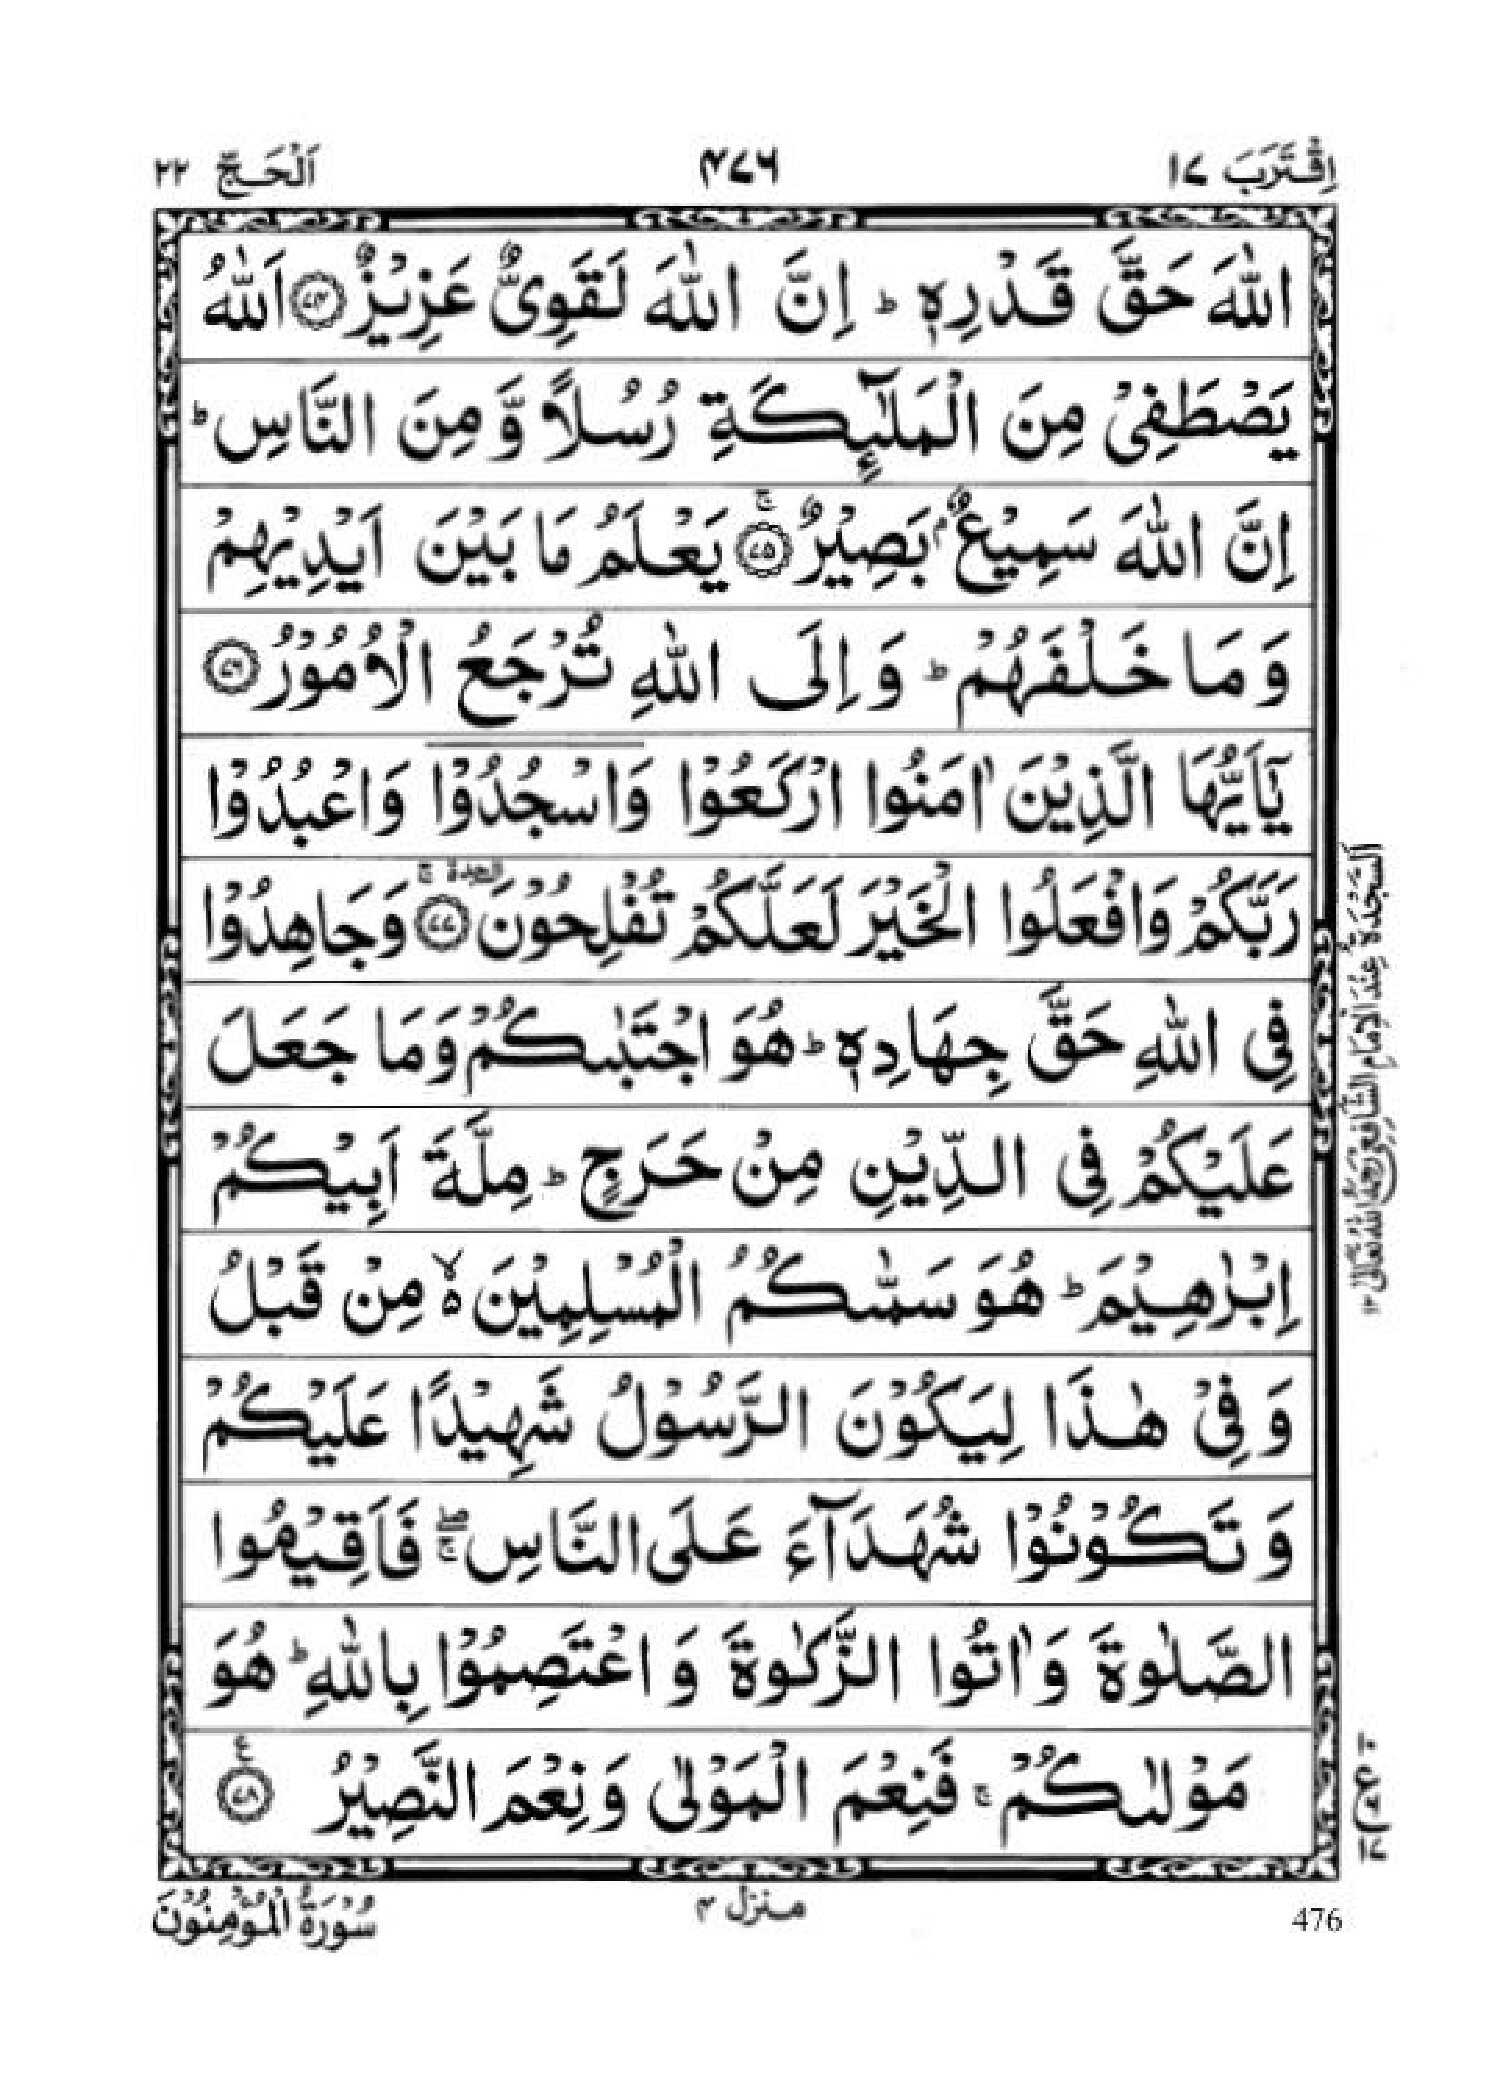 اِقْتَرَبَ ١٧
٤٧٦
اَلْحَجّ ٢٢
اللّٰهَ حَقَّ قَدْرِهٖ ؕ اِنَّ اللّٰهَ لَقَوِیٌّ عَزِیْزٌ ﴿۷۴﴾ اَللّٰهُ
یَصْطَفِیْ مِنَ الْمَلٰٓىِٕكَةِ رُسُلًا وَّ مِنَ النَّاسِ ؕ
اِنَّ اللّٰهَ سَمِیْعٌۢ بَصِیْرٌ ﴿۷۵﴾ ۚ یَعْلَمُ مَا بَیْنَ اَیْدِیْهِمْ
وَ مَا خَلْفَهُمْ ؕ وَ اِلَی اللّٰهِ تُرْجَعُ الْاُمُوْرُ ﴿۷۶﴾
یٰۤاَیُّهَا الَّذِیْنَ اٰمَنُوا ارْكَعُوْا وَ اسْجُدُوْا وَ اعْبُدُوْا
رَبَّكُمْ وَ افْعَلُوا الْخَیْرَ لَعَلَّكُمْ تُفْلِحُوْنَ ﴿۷۷﴾ السجدة ۚ وَ جَاهِدُوْا
فِی اللّٰهِ حَقَّ جِهَادِهٖ ؕ هُوَ اجْتَبٰىكُمْ وَ مَا جَعَلَ
عَلَیْكُمْ فِی الدِّیْنِ مِنْ حَرَجٍ ؕ مِلَّةَ اَبِیْكُمْ
اِبْرٰهِیْمَ ؕ هُوَ سَمّٰىكُمُ الْمُسْلِمِیْنَ ۙ۬ مِنْ قَبْلُ
وَ فِیْ هٰذَا لِیَكُوْنَ الرَّسُوْلُ شَهِیْدًا عَلَیْكُمْ
وَ تَكُوْنُوْا شُهَدَآءَ عَلَی النَّاسِ ۖۚ فَاَقِیْمُوا
الصَّلٰوةَ وَ اٰتُوا الزَّكٰوةَ وَ اعْتَصِمُوْا بِاللّٰهِ ؕ هُوَ
مَوْلٰىكُمْ ۚ فَنِعْمَ الْمَوْلٰی وَ نِعْمَ النَّصِیْرُ ﴿۷۸﴾
اَلسَّجْدَةُ عِنْدَ الْاِمَامِ الشَّافِعِيِّ رَحِمَهُ اللّٰهُ تَعَالٰی ١٢
سُوْرَةُ الْمُؤْمِنُوْنَ
منزل ۴
476